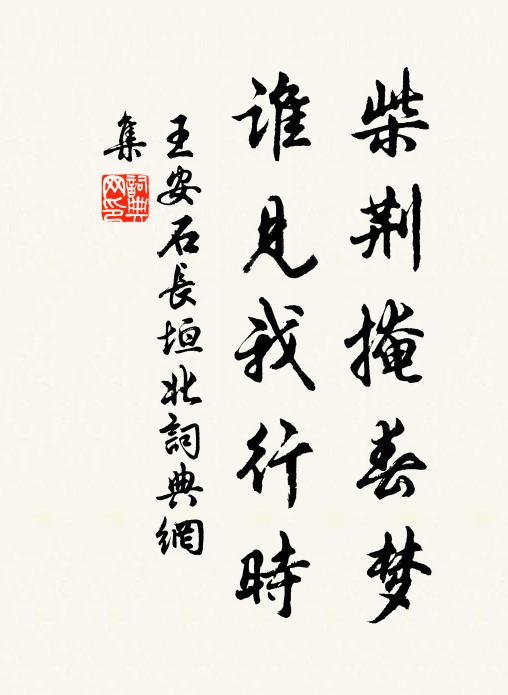 柴荆掩春梦
谁見我行時
王安石長垣北詞典網
集
詞典網印